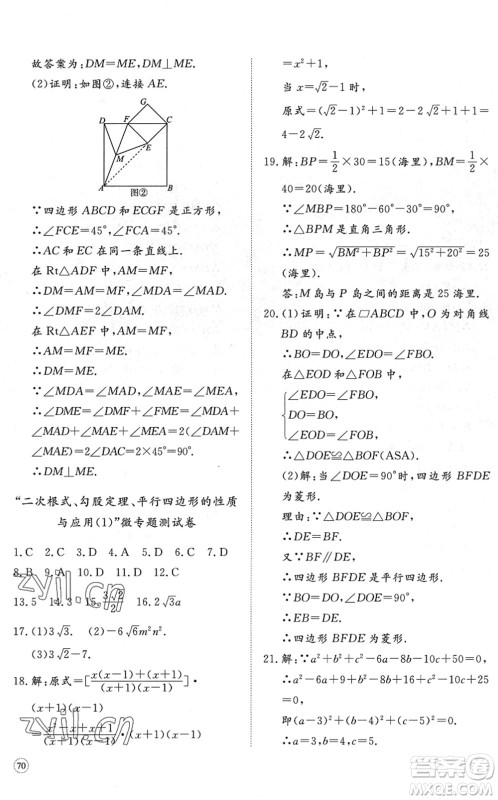 故答案为：DM=ME，DM⊥ME.
(2)证明：如图②，连接 AE.
G
D F C
E
M
A 图② B
∵四边形 ABCD 和 ECGF 是正方形，
∴∠FCE=45°，∠FCA=45°.
∴AC 和 EC 在同一条直线上.
在 Rt△ADF 中，AM=MF，
∴DM=AM=MF.
在 Rt△AEF 中，AM=MF，
∴AM=MF=ME.
∴DM=ME.
∵∠MDA=∠MAD，∠MAE=∠MEA，
∴∠DME=∠DMF+∠FME=∠MDA+
∠MAD+∠MAE+∠MEA=2(∠MAD+
∠MAE)=2∠DAC=2×45°=90°.
∴DM⊥ME.
“二次根式、勾股定理、平行四边形的性质
与应用(1)”微专题测试卷
1.C 2.D 3.C 4.D 5.D 6.C 7.C
8.B 9.A 10.D 11.A 12.C
13.5 14.3 15.3√2/2 16.2√3a
17.(1)3√3. (2)-6m²n².
(3)3√2-7.
18.解：原式=[x(x-1)+(x+1)/(x+1)(x-1)]·
(x+1)(x-1)
=x²-x+x+1/(x+1)(x-1)·(x+1)(x-1)
70
=x²+1，
当 x=√2-1 时，
原式=(√2-1)²+1=2-2√2+1+1=
4-2√2.
19.解：BP=1/2×30=15(海里)，BM=1/2×
40=20(海里).
∵∠MBP=180°-60°-30°=90°，
∴△BPM 是直角三角形.
∴MP=√BM²+BP²=√15²+20²=25
(海里).
答：M 岛与 P 岛之间的距离是 25 海里.
20.(1)证明：∵在▱ABCD 中，O 为对角线
BD 的中点，
∴BO=DO，∠EDO=∠FBO.
在△EDO 和△FBO 中，
∠EDO=∠FBO，
DO=BO，
∠EOD=∠FOB，
∴△DOE≌△BOF(ASA).
(2)解：当∠DOE=90°时，四边形 BFDE
为菱形.
理由：∵△DOE≌△BOF，
∴OE=OF.
又∵OB=OD，
∴四边形 BFDE 是平行四边形.
∵BO=DO，∠EOD=90°，
∴EB=DE.
∴四边形 BFDE 为菱形.
21.解：∵a²+b²+c²-6a-8b-10c+50=0，
∴a²+b²+c²-6a-8b-10c+9+16+25=0，
即(a-3)²+(b-4)²+(c-5)²=0.
∴a=3，b=4，c=5，
zyjl.cn
zyjl.cn
答案圈